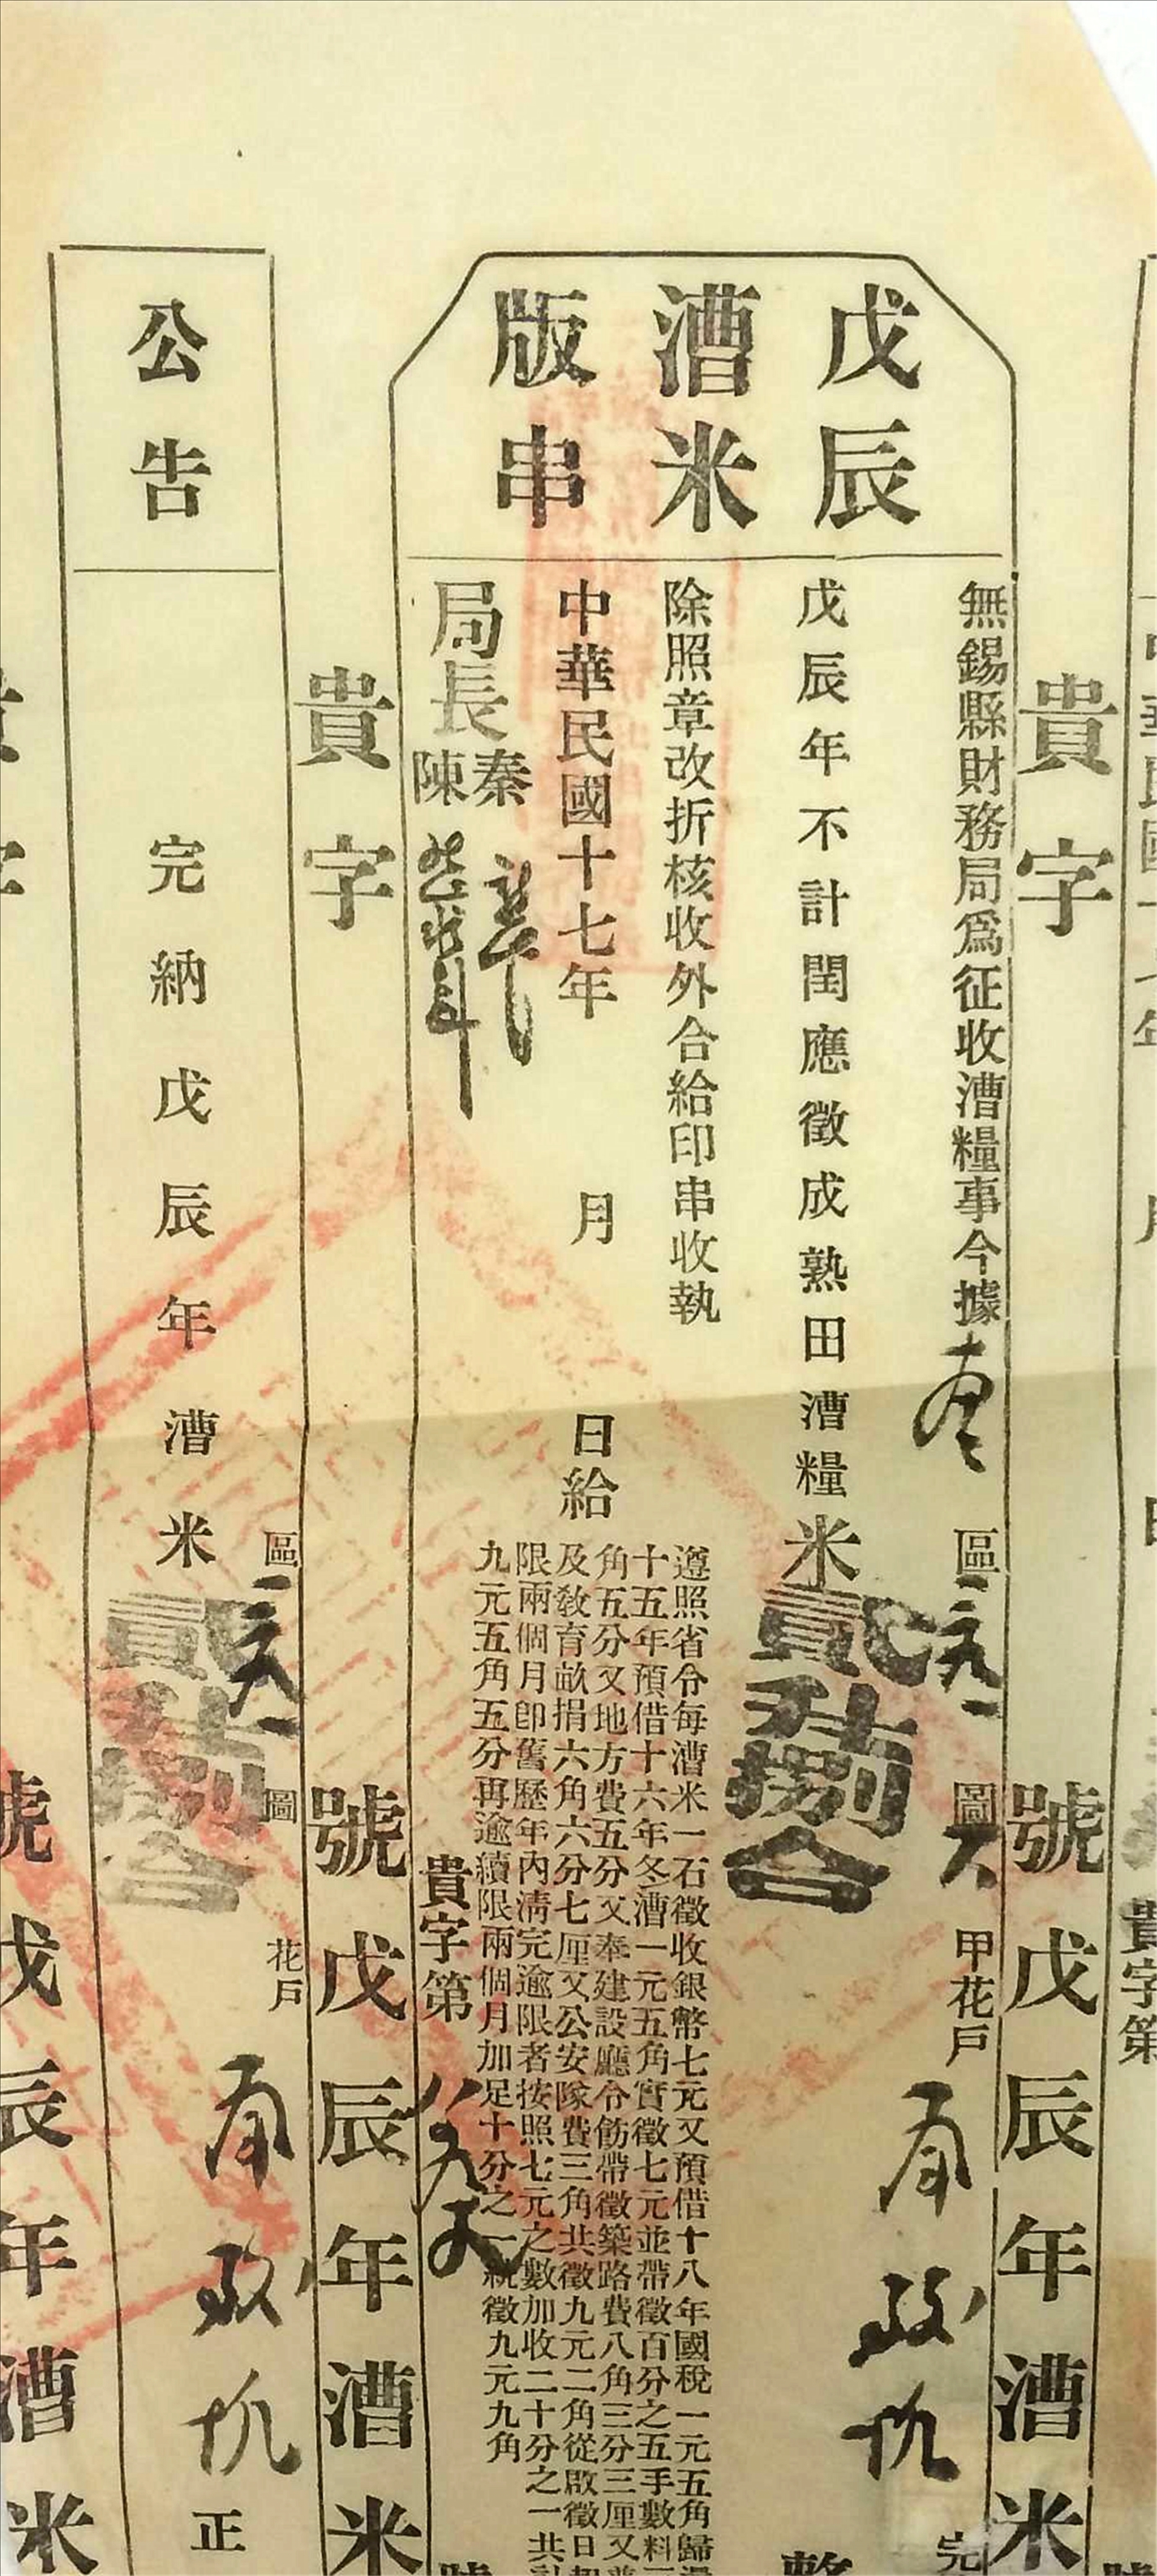 戊辰
漕米
版串
貴字
號戊辰年漕米
無錫縣財務局爲征收漕糧事今據
區
圖
甲花戶
完
戊辰年不計閏應徵成熟田漕糧米貳升捌合
整
除照章改折核收外合給印串收執
遵照省令每漕米一石徵收銀幣七元又預借十八年國稅一元五角歸還
十五年預借十六年冬漕一元五角實徵七元並帶徵百分之五手數料三
角五分又地方費五分又奉建設廳令飭帶徵築路費八角三分三厘又普
及敎育畝捐六角六分七厘又公安隊費三角共徵九元二角從啟徵日起
限兩個月卽舊歷年內清完逾限者按照七元之數加收二十分之一共計
九元五角五分再逾續限兩個月加足十分之一統徵九元九角
中華民國十七年 月 日給
局長
秦
陳
貴字第
號
貴字
號戊辰年漕米
公告
區
圖
花戶
完納戊辰年漕米貳升捌合
正
貴字
號戊辰年漕米
貴字第